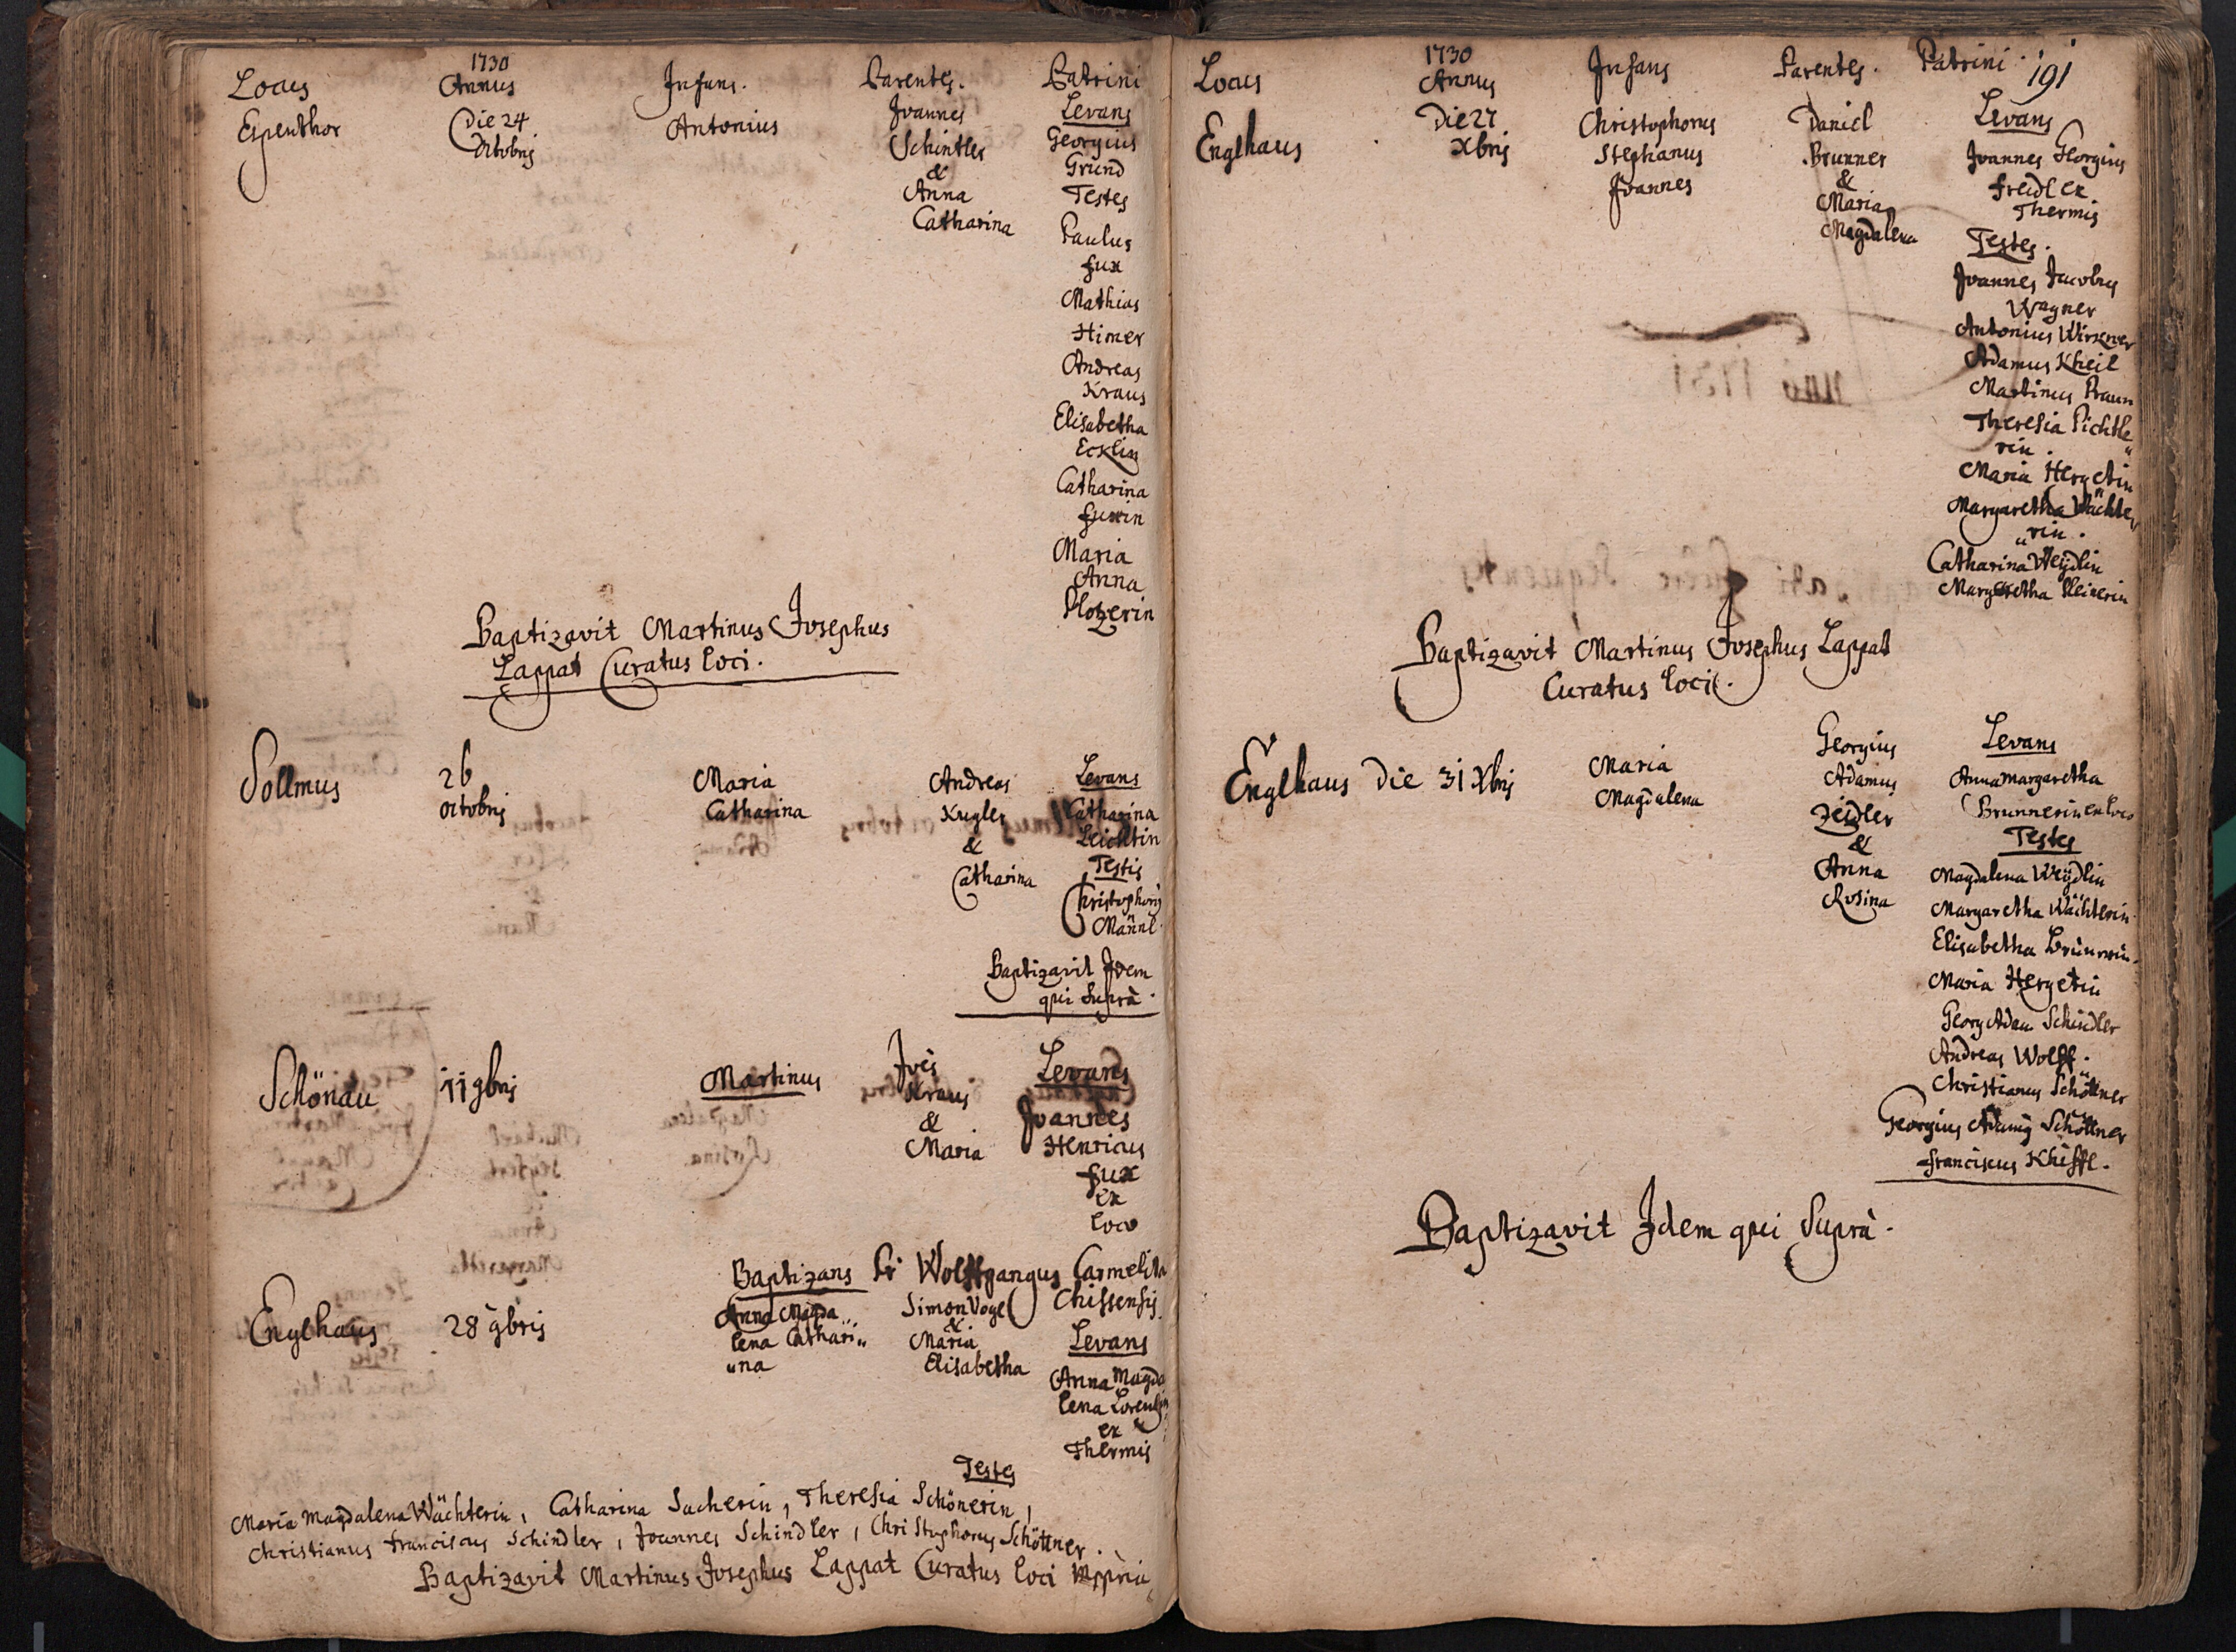 1730
Locus Annus Infans. Parentes. Patrini
Espenthor Die 24 Antonius Joannes Levans
Octobris Schintler Georgius
& Grund
Anna Testes
Catharina Paulus
Fux
Mathias
Himer
Andreas
Kraus
Elisabetha
Ecklin
Catharina
Fuxin
Maria
Anna
Plozerin
Baptizavit Martinus Josephus
Lappat Curatus loci.
Sollmus 26 Maria Andreas Levans
octobris Catharina Kugler Catharina
& Leichtin
Catharina Testis
Christophorus
Männl
Baptizavit Idem
qui Suprà.
Schönau 11 9bris Martinus Joes Levans
Kraus Joannes
& Henricus
Maria Fux
ex
loco
Baptizans Pr Wolffgangus Carmelita
Chissensis.
Englhaus 28 9bris Anna Magda„ Simon Vogel Levans
lena Cathari„ & Maria Anna Magda
„na Elisabetha lena
ex
Thermis
Testes
Maria Magdalena Wächterin, Catharina Sacherin, Theresia Schönerin,
Christianus Franciscus Schindler, Joannes Schindler, Christophorus Schöttner.
Baptizavit Martinus Josephus Lappat Curatus loci Mppria
1730
Locus Annus Infans Parentes. Patrini. 191
Englhaus Die 27 Christophorus Daniel Levans
Xbris Stephanus Brunner Joannes Georgius
Joannes & Freidl ex
Maria Thermis
Magdalena Testes.
Joannes Jacobus
Wagner
Antonius
Adamus Kheil
Martinus Praun
Theresia Pichtle„
rin.
Maria Hergetin
Margaretha Wächte„
„rin.
Catharina Weydlin
Margaretha
Baptizavit Martinus Josephus Lappat
Curatus loci.
Englhaus Die 31 Xbris Maria Georgius Levans
Magdalena Adamus Anna Margaretha
Zeidler Brunnerin ex loco
& Testes
Anna Magdalena Weydlin
Rosina Margaretha Wächterin
Elisabetha
Maria Hergetin
Georg Adam Schindler
Andreas Wolff.
Christianus Schöttner
Georgius Adamus Schöttner
Franciscus Khiffl.
Baptizavit Idem qui Suprà.